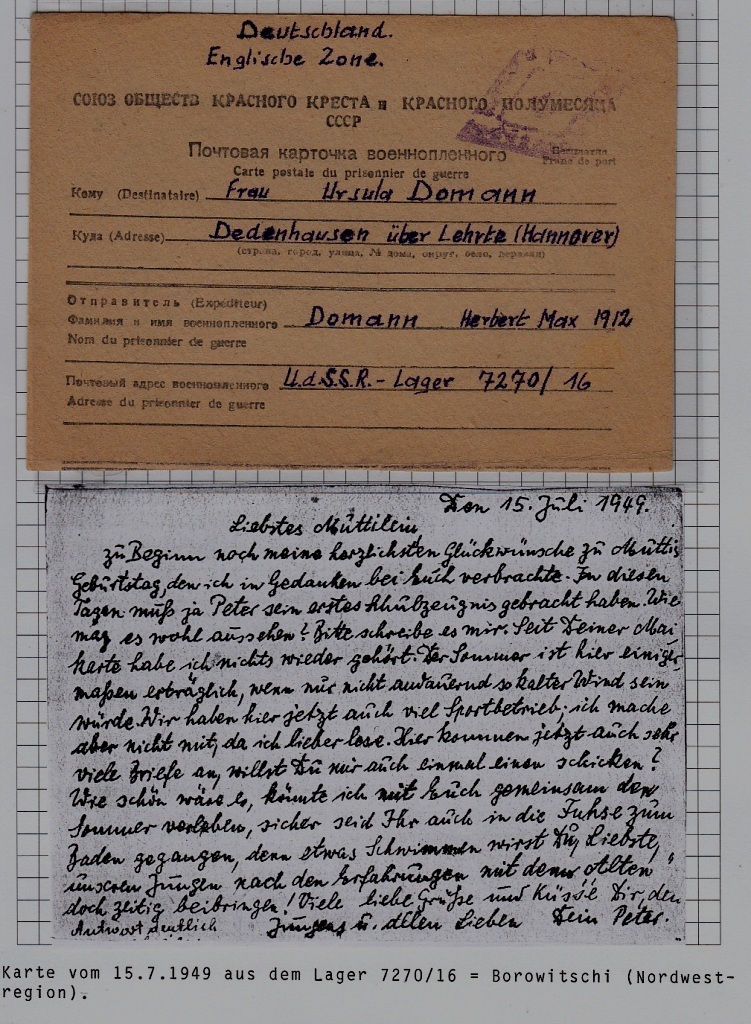 Deutschland.
Englische Zone.
СОЮЗ ОБЩЕСТВ КРАСНОГО КРЕСТА и КРАСНОГО ПОЛУМЕСЯЦА
СССР
Почтовая карточка военнопленного
Carte postale du prisonnier de guerre
Franc de port
Кому (Destinataire) Frau Ursula Domann
Куда (Adresse) Dedenhausen über Lehrte (Hannover)
(страна, город, улица, № дома, округ, село, деревня)
Отправитель (Expéditeur)
Фамилия и имя военнопленного Domann Herbert Max 1912
Nom du prisonnier de guerre
Почтовый адрес военнопленного U.d.S.S.R.-Lager 7270/16
Adresse du prisonnier de guerre
Den 15. Juli 1949.
Liebstes Muttilein
zu Beginn noch meine herzlichsten Glückwünsche zu Muttis
Geburtstag, den ich in Gedanken bei Euch verbrachte. In diesen
Tagen muß ja Peter sein erstes Schulzeugnis gebracht haben. Wie
mag es wohl aussehen? Bitte schreibe es mir. Seit Deiner Mai
karte habe ich nichts wieder gehört. Der Sommer ist hier einiger
maßen erträglich, wenn nur nicht andauernd so kalter Wind sein
würde. Wir haben hier jetzt auch viel Sportbetrieb; ich mache
aber nicht mit, da ich lieber lese. Hier kommen jetzt auch sehr
viele Briefe an, willst Du mir auch einmal einen schicken?
Wie schön wäre es, könnte ich mit Euch gemeinsam den
Sommer verleben, sicher seid Ihr auch in die Fuhse zum
Baden gegangen, denn etwas Schwimmen wirst Du, Liebste,
unseren Jungen nach den Erfahrungen mit dem „Alten“
doch zeitig beibringen! Viele liebe Grüße und Küsse Dir, den
Antwort deutlich Jungens u. allen Lieben Dein Peter.
Karte vom 15.7.1949 aus dem Lager 7270/16 = Borowitschi (Nordwest-
region).